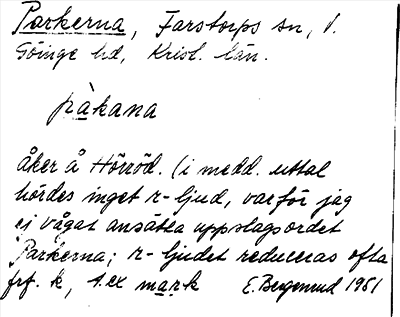 Parkerna, Farstorps sn, V.
Göinge hd, Krist. län.
pàkana
åker å Hörröd. (i medd. uttal
hördes inget r-ljud, varför jag
ej vågat ansätta uppslagsordet
Parkerna; r-ljudet reduceras ofta
frf. k, t.ex mark E. Bergenrud 1951